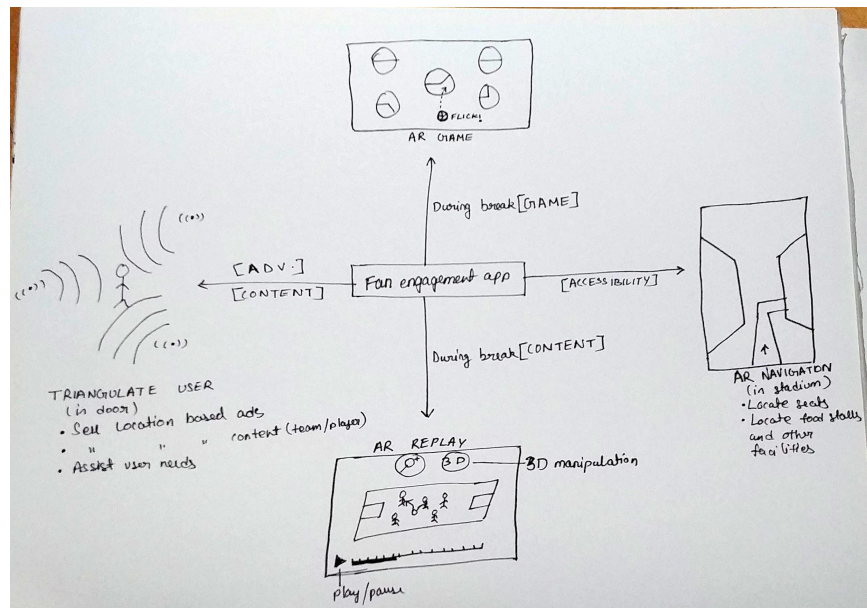 FLICK!
AR GAME
During break [GAME]
[ADV.]
[CONTENT]
Fan engagement app
[ACCESSIBILITY]
During break [CONTENT]
TRIANGULATE USER
(in door)
• Sell Location based ads
• " " " content (team/player)
• Assist user needs
AR NAVIGATION
(in stadium)
• Locate seats
• Locate food stalls
and other
facilities
AR REPLAY
3D
3D manipulation
play/pause